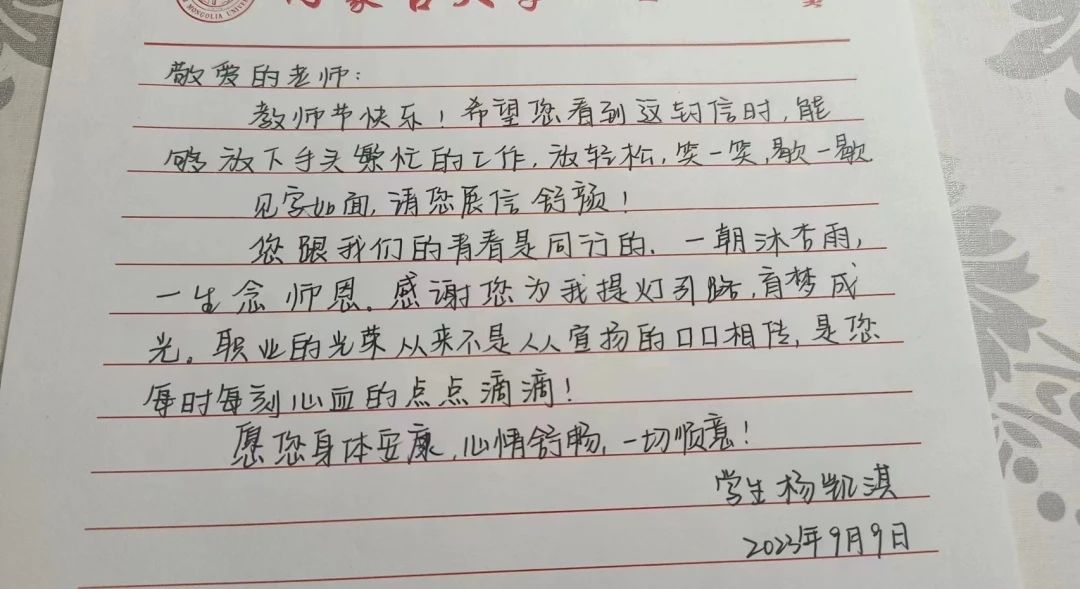 MONGOLIA UNIVER
敬爱的老师:
教师节快乐!希望您看到这封信时,能
够放下手头繁忙的工作,放轻松,笑一笑,歇一歇
见字如面,请您展信舒颜!
您跟我们的青春是同行的、一朝沐杏雨,
一生念师恩。感谢您为我提灯引路,育梦成
光。职业的光荣从来不是人人宣扬的口口相传,是您
每时每刻心血的点点滴滴!
愿您身体安康,心情舒畅,一切顺意!
学生杨凯淇
2023年9月9日